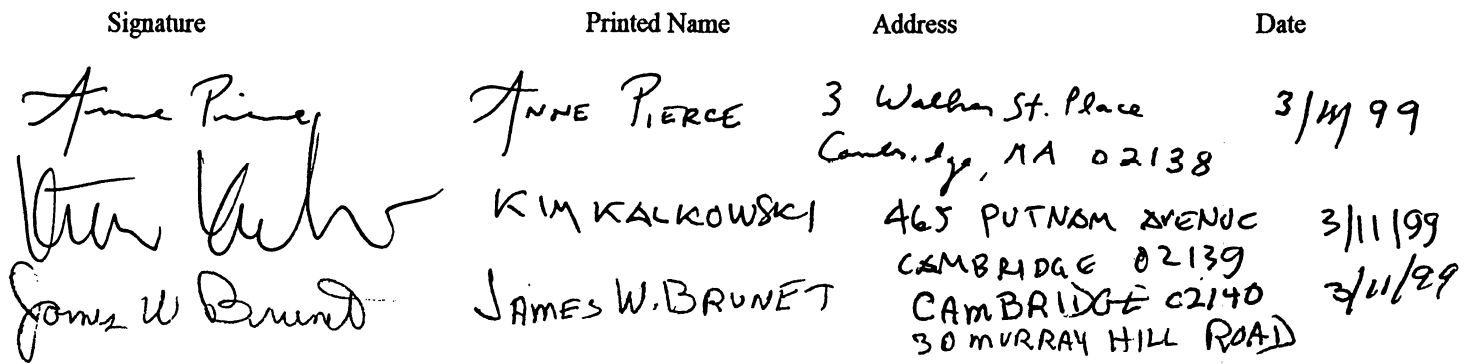 Signature Printed Name Address Date
Anne Pierce ANNE PIERCE 3 Walker St. Place 3/11/99
Cambridge, MA 02138
Kim Kalkowski KIM KALKOWSKI 465 PUTNAM AVENUE 3/11/99
CAMBRIDGE 02139
James W Brunet JAMES W. BRUNET CAMBRIDGE 02140 3/11/99
30 MURRAY HILL ROAD